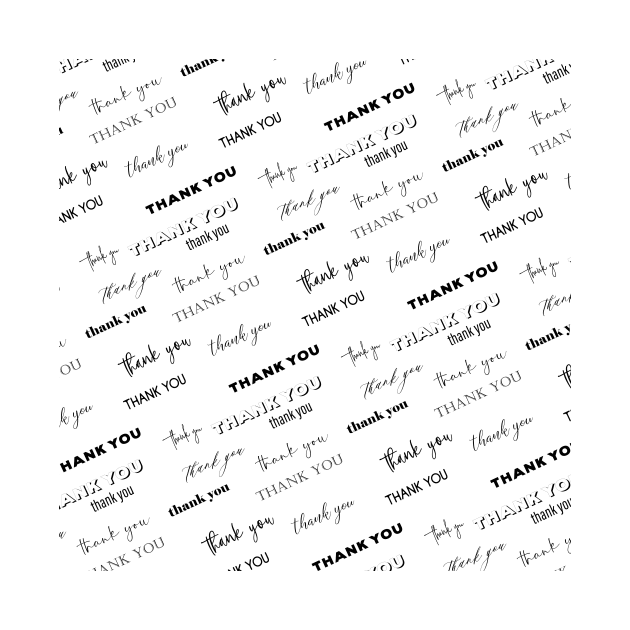 thank you
thank you
thank you
thank you
thank you
thank you
THANK YOU
THANK YOU
THANK YOU
thank you
THANK YOU
thank you
thank you
thank you
thank you
THANK YOU
thank you
thank you
THANK YOU
thank you
thank you
thank you
THANK YOU
thank you
THANK YOU
thank you
thank you
THANK YOU
thank you
thank you
thank you
thank you
thank you
THANK YOU
thank you
THANK YOU
THANK YOU
thank you
THANK YOU
thank you
thank you
thank you
thank you
THANK YOU
THANK YOU
thank you
THANK YOU
thank you
thank you
thank you
thank you
THANK YOU
thank you
thank you
THANK YOU
thank you
thank you
THANK YOU
thank you
thank you
thank you
THANK YOU
THANK YOU